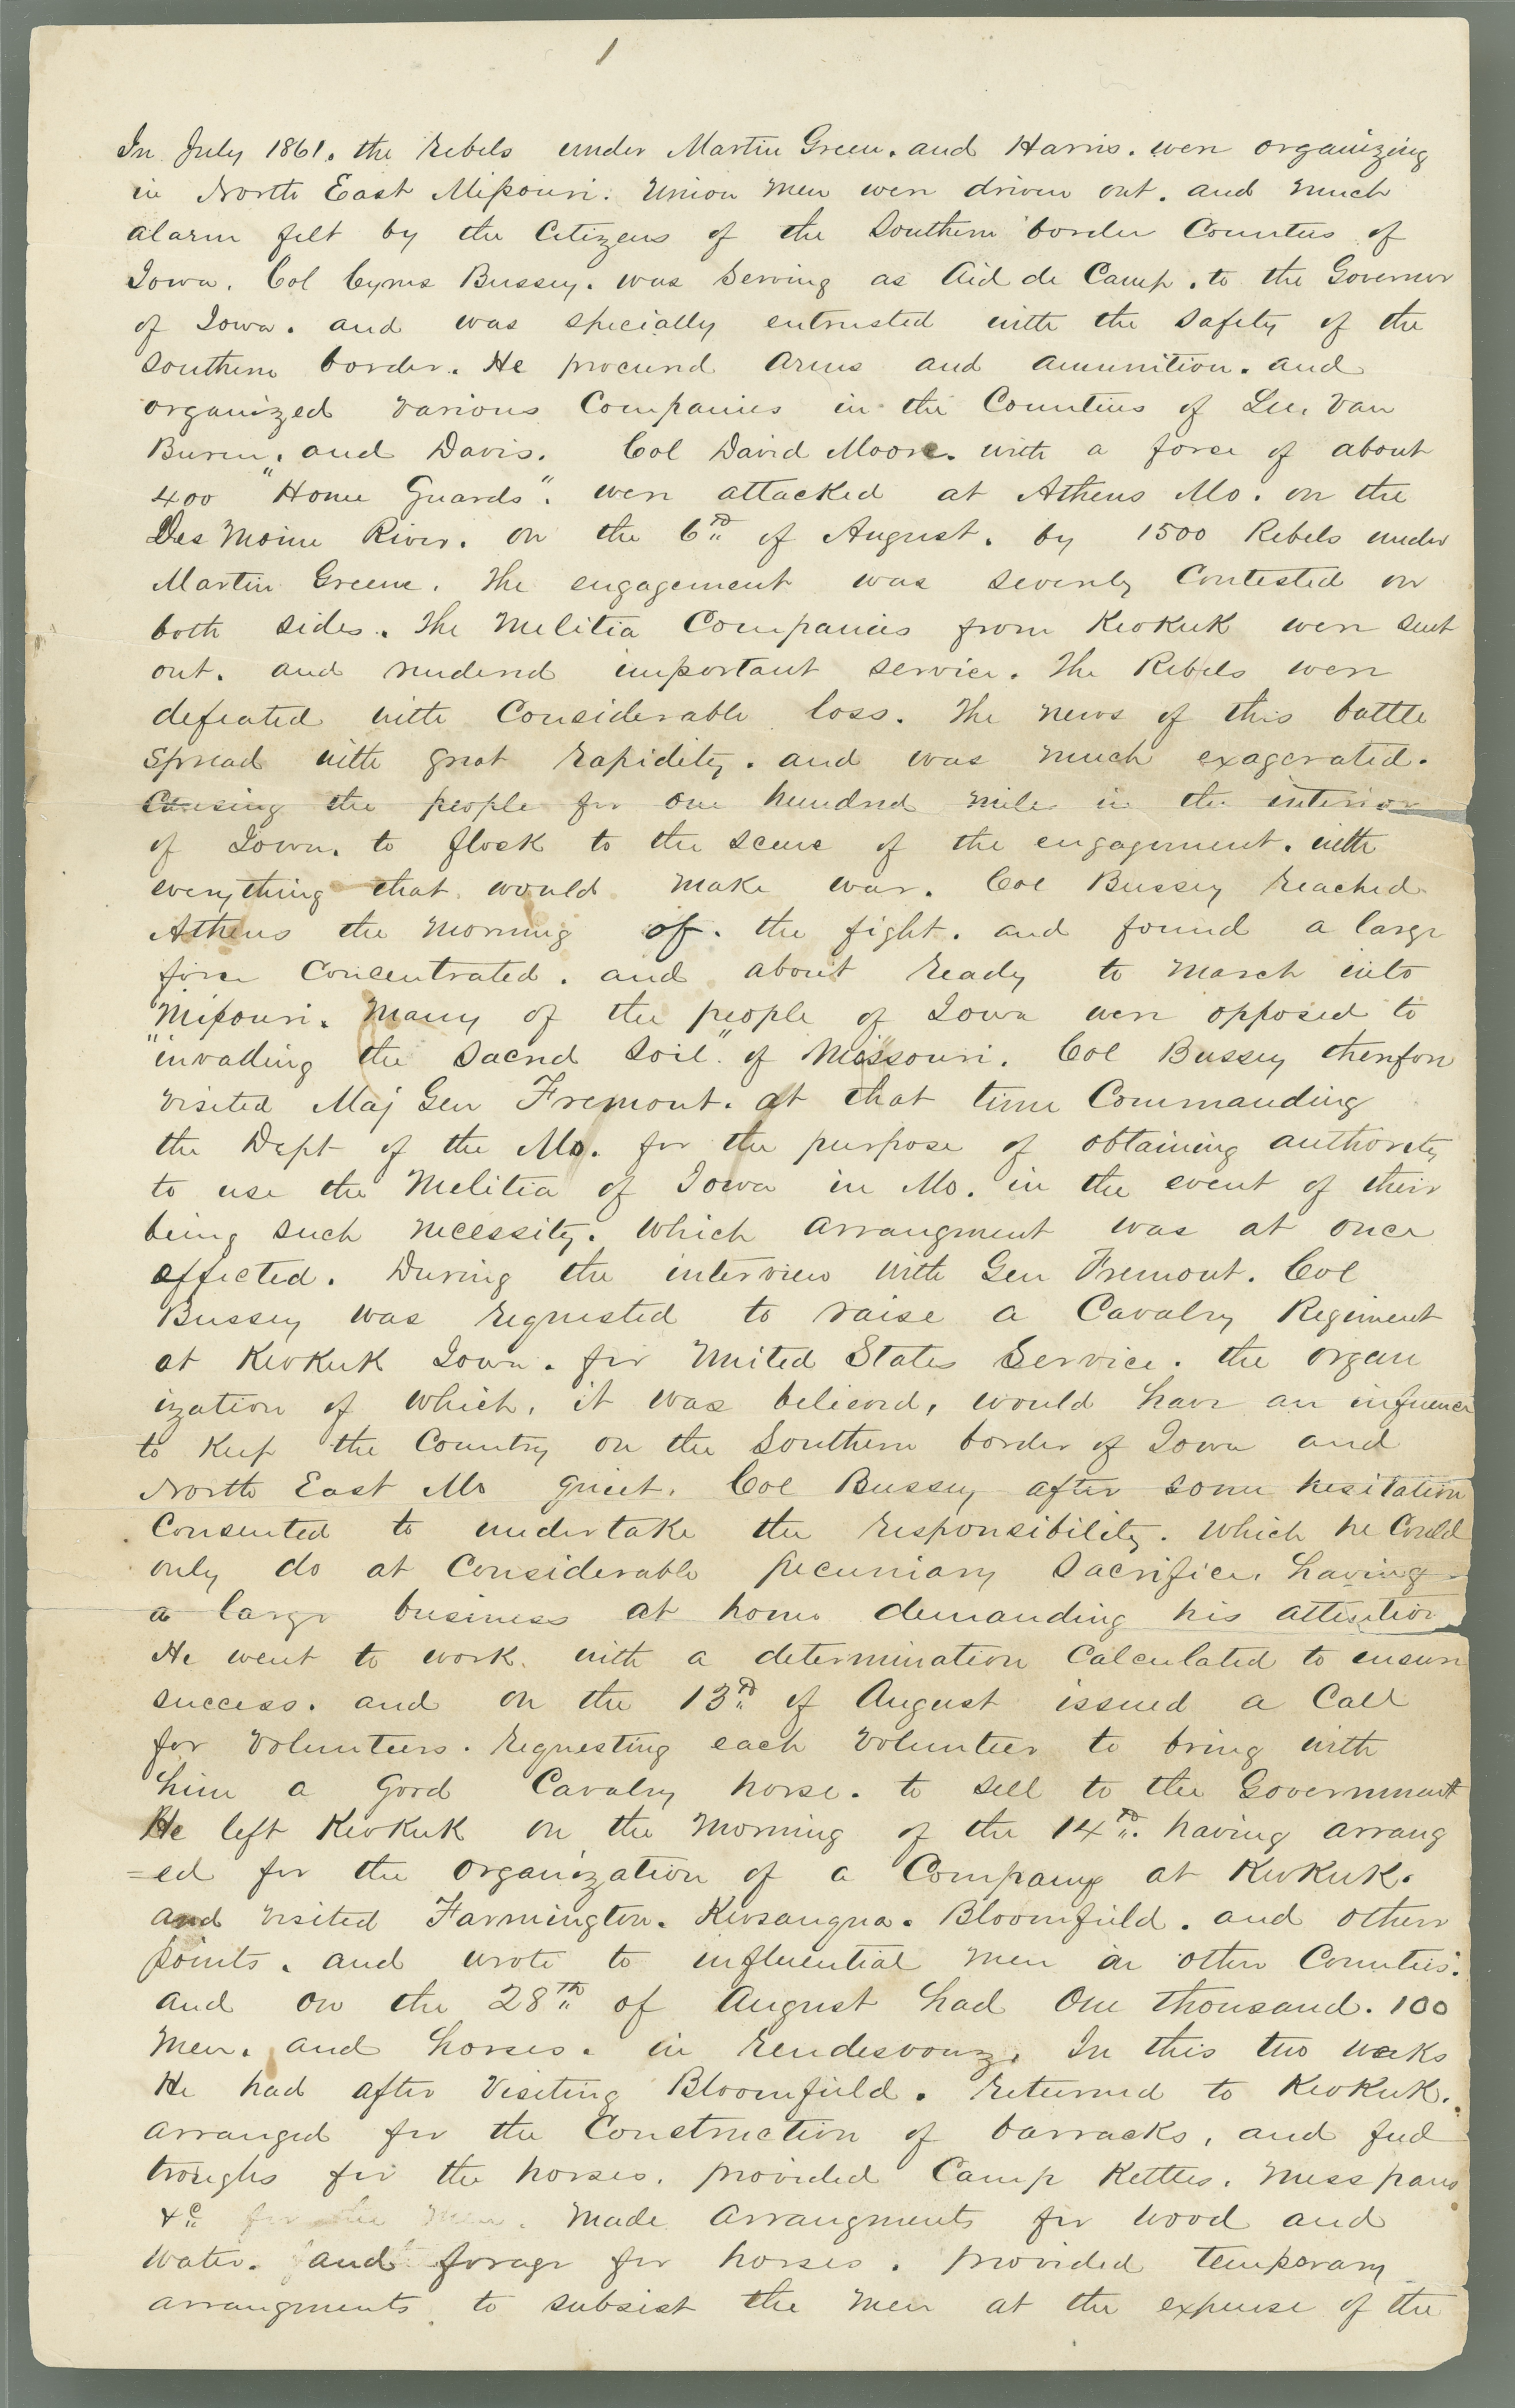 1
In July 1861. the rebels under Martin Green. and Harris. were organizing
in North East Missouri. Union men were driven out. and much
alarm felt by the Citizens of the Southern border Counties of
Iowa. Col Cyrus Bussey. was serving as Aid de Camp. to the Governor
of Iowa. and was specially entrusted with the safety of the
southern border. He procured arms and amunition. and
organized various Companies in the Counties of Lee, Van
Buren, and Davis. Col David Moore. with a force of about
400 "Home Guards". were attacked at Athens Mo. on the
Des Moine River. on the 6th of August. by 1500 Rebels under
Martin Greene. The engagement was severely Contested on
both sides. The Melitia Companies from Keokuk were sent
out. and rendered important service. The Rebels were
defeated with Considerable loss. The news of this battle
spread with great rapidity. and was much exagerated.
Causing the people for one hundred miles in the interior
of Iowa. to flock to the scene of the engagement. with
everything that would make war. Col Bussey reached
Athens the morning of. the fight. and found a large
force Concentrated. and about ready to march into
Missouri. Many of the people of Iowa were opposed to
"invading the sacred soil" of Missouri. Col Bussey therefore
visited Maj Gen Fremont. at that time Commanding
the Dept of the Mo. for the purpose of obtaining authority
to use the Melitia of Iowa in Mo. in the event of their
being such necessity. which arrangment was at once
effected. During the interview with Gen Fremont. Col
Bussey was requested to raise a Cavalry Regiment
at Keokuk Iowa. for United States Service. the organ
ization of which, it was believed, would have an influence
to keep the Country on the Southern border of Iowa and
North East Mo quiet. Col Bussey after some hesitation
Consented to undertake the responsibility. which he Could
only do at Considerable pecuniary sacrifice, having
a large business at home demanding his attention
He went to work. with a determination Calculated to ensure
success. and on the 13rd of August issued a Call
for Volunteers. requesting each Volunteer to bring with
him a good Cavalry horse. to sell to the Government
He left Keokuk on the morning of the 14th. having arrang
=ed for the organization of a Company at Keokuk.
and visited Farmington. Keosauqua. Bloomfield. and other
points. and wrote to influential men in other Counties.
and on the 28th of August had One thousand. 100
men. and horses. in rendesvouz. In this two weeks
He had after Visiting Bloomfield. returned to Keokuk.
arranged for the Construction of barracks, and feed
troughs for the horses. provided Camp Kettles. Mess pans
&c for the men. Made arrangments for wood and
water. and forage for horses. provided temporary
arrangments to subsist the men at the expense of the